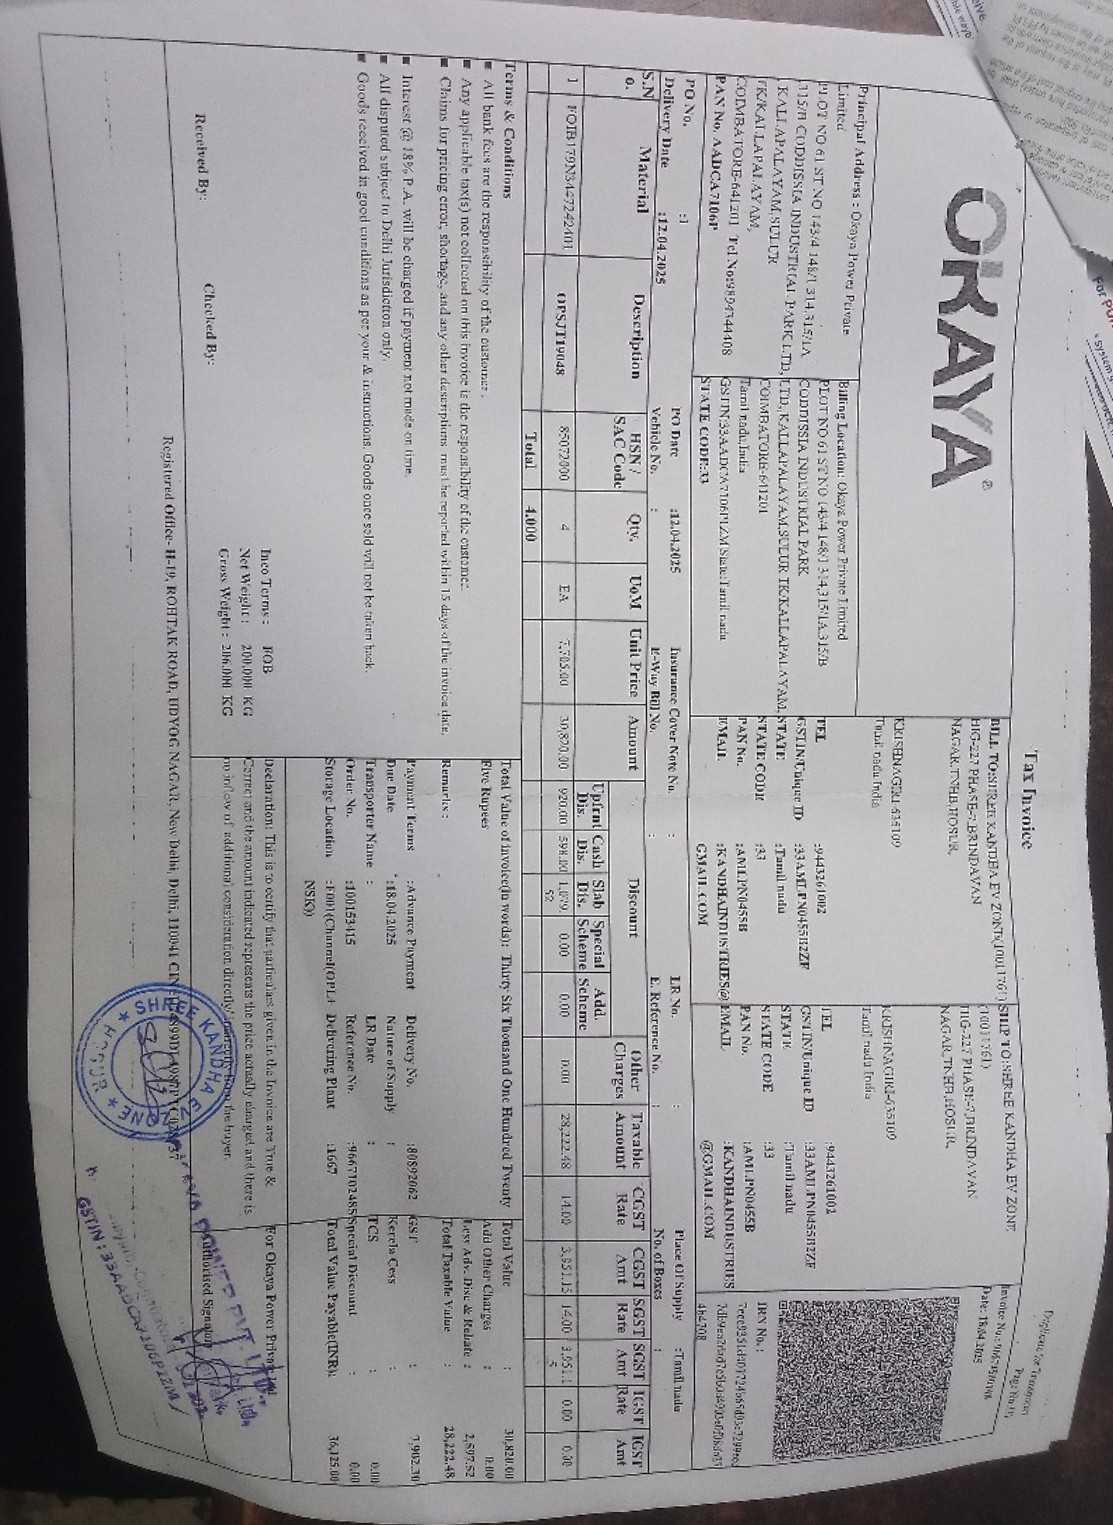 Tax Invoice
Duplicate for Transporter
OKAYA®
Date: 18.04.2025
Principal Address : Okaya Power Private
Limited
PLOT NO 61 ST NO 143/4 148/1 314,315/1A
315/B CODDISSIA INDUSTRIAL PARK LTD,
KALLAPALAYAM,SULUR
TK/KALLAPALAYAM,
COIMBATORE-641201 Tel No:9894344408
PAN No. AADCA7106P
Billing Location: Okaya Power Private Limited
PLOT NO 61 ST NO 143/4 148/1 314,315/1A,315/B
CODDISSIA INDUSTRIAL PARK
LTD,,KALLAPALAYAM,SULUR TK/KALLAPALAYAM,
COIMBATORE-641201
Tamil nadu,India
GSTIN:33AADCA7106P1ZM State:Tamil nadu
STATE CODE:33
BILL TO:SHREE KANDHA EV ZONE(10011761)
HIG-227 PHASE-7,BRINDAVAN
NAGAR,TNHB,HOSUR,
KRISHNAGIRI-635109
Tamil nadu India
TEL :9443261002
GSTIN/Unique ID :33AMLPN0455B2ZF
STATE :Tamil nadu
STATE CODE :33
PAN No. :AMLPN0455B
EMAIL :KANDHAINDUSTRIES@
GMAIL.COM
SHIP TO:SHREE KANDHA EV ZONE
(10011761)
HIG-227 PHASE-7,BRINDAVAN
NAGAR,TNHB,HOSUR,
KRISHNAGIRI-635109
Tamil nadu India
TEL :9443261002
GSTIN/Unique ID :33AMLPN0455B2ZF
STATE :Tamil nadu
STATE CODE :33
PAN No. :AMLPN0455B
EMAIL :KANDHAINDUSTRIES
@GMAIL.COM
IRN No. :
PO No. :1 PO Date :12.04.2025 Insurance Cover Note No. : LR No. : Place Of Supply :Tamil nadu
Delivery Date :12.04.2025 Vehicle No. : E-Way Bill No. : E. Reference No. : No. of Boxes :
S.No. Material Description HSN / SAC Code Qty. UoM Unit Price Amount Discount Other Charges Taxable Amount CGST Rate CGST Amt SGST Rate SGST Amt IGST Rate IGST Amt
Upfrnt Dis. Cash Dis. Slab Dis. Special Scheme Add. Scheme
1 OPSJT19048 85072000 4 EA 7,705.00 30,820.00 920.00 598.00 1,079.52 0.00 0.00 0.00 28,222.48 14.00 3,951.15 14.00 3,951.15 0.00 0.00
Total 4.000
Terms & Conditions
■ All bank fees are the responsibility of the customer .
■ Any applicable tax(s) not collected on this invoice is the responsibility of the customer.
■ Claims for pricing error, shortage, and any other descriptions must be reported within 15 days of the invoice date.
■ Interest @ 18% P.A. will be charged if payment not made on time.
■ All disputed subject to Delhi Jurisdiction only.
■ Goods received in good conditions as per your & instructions Goods once sold will not be taken back.
Total Value of invoice(in words): Thirty Six Thousand One Hundred Twenty
Five Rupees
Remarks :
Payment Terms :Advance Payment Delivery No. :80892062
Due Date :18.04.2025 Nature of Supply :
Transporter Name : LR Date :
Order No. :100153415 Reference No. :9667102485
Storage Location :F001(Channel(OPL+ Delivering Plant :1667
NSK))
Total Value : 30,820.00
Add Other Charges : 0.00
Less Adv. Disc & Rebate : 2,597.52
Total Taxable Value : 28,222.48
GST : 7,902.30
Kerela Cess :
TCS : 0.00
Special Discount : 0.00
Total Value Payable(INR): 36,125.00
Inco Terms : FOB
Net Weight : 200.000 KG
Gross Weight : 206.000 KG
Received By:
Checked By:
Declaration: This is to certify that particulars given in the Invoice are True &
Correct and the amount indicated represents the price actually charged and there is
no inflow of additional consideration directly/indirectly from the buyer.
For Okaya Power Private Ltd
Authorised Signatory
Registered Office- H-19, ROHTAK ROAD, UDYOG NAGAR, New Delhi, Delhi, 110041
SHREE KANDHA EV ZONE
★ HOSUR ★
GSTIN : 33AADCA7106P1ZM